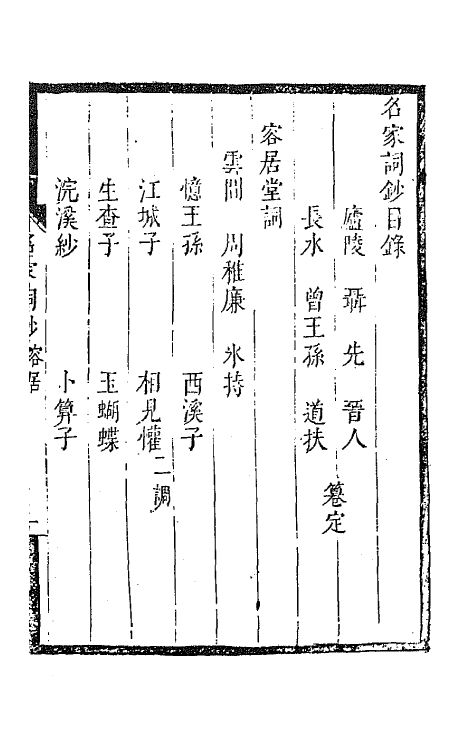 名家詞鈔目錄
廬陵　聶　先　晉人
長水　曾王孫　道扶
篹定
容居堂詞
雲間　周稚廉　氷持
憶王孫　西溪子
江城子　相見懽二調
生查子　玉蝴蝶
浣溪紗　卜算子
名家詞鈔　容居